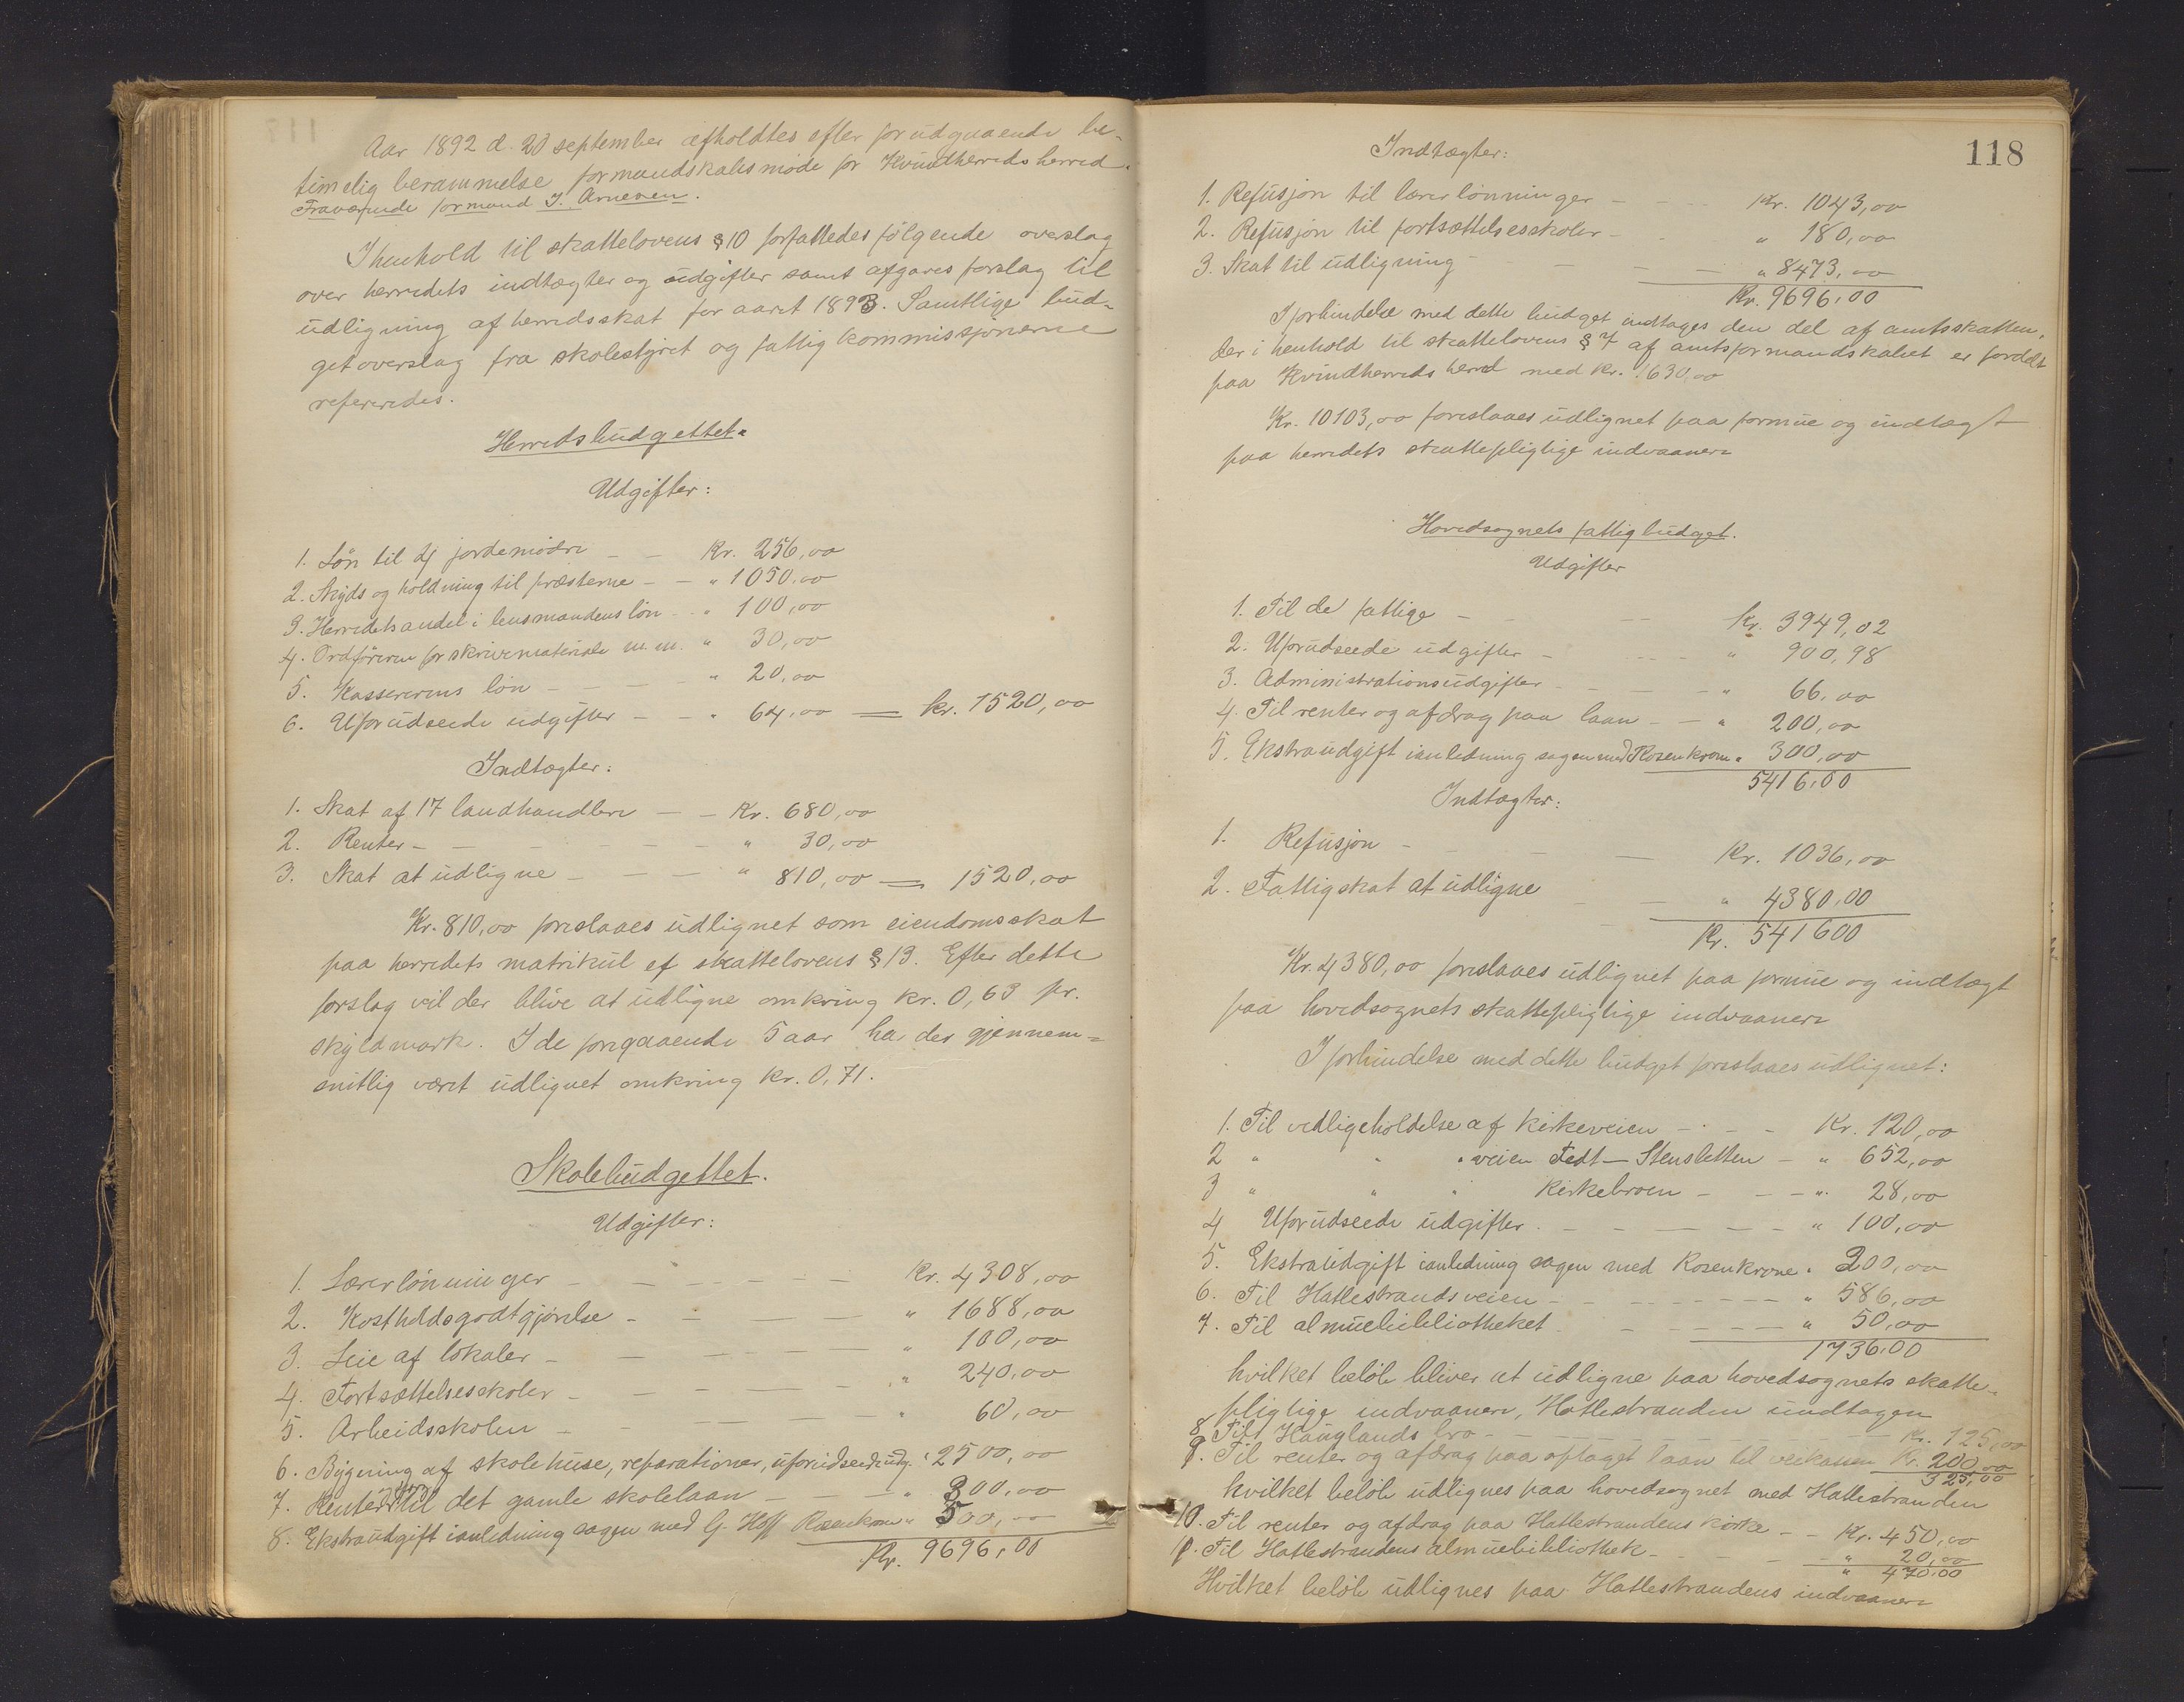 Aar 1892 d. 20 september afholdtes efter forudgaaende be-
timelig berammelse formandskabsmøde for Kvindherreds herred.
Fraværende formand J. Arnesen.
I henhold til skattelovens § 10 forfattedes følgende overslag
over herredets indtægter og udgifter samt afgaves forslag til
udligning af herredsskat for aaret 1893. Samtlige bud-
getoverslag fra skolestyret og fattigkommissjonerne
refereredes.
Herredsbudgettet.
Udgifter:
1. Løn til 4 jordemødre — — Kr. 256,00
2. Skyds og holdning til præsterne — — " 1050,00
3. Herredets andel i lensmandens løn — " 100,00
4. Ordføreren for skrivemateriale m. m. " 30,00
5. Kassererens løn — — — " 20,00
6. Uforudseede udgifter — — " 64,00 = kr. 1520,00
Indtægter:
1. Skat af 17 landhandlere — — Kr. 680,00
2. Renter — — — — — — " 30,00
3. Skat at udligne — — — " 810,00 = 1520,00
Kr. 810,00 foreslaaes udlignet som eiendomsskat
paa herredets matrikul ef skattelovens § 13. Efter dette
forslag vil der blive at udligne omkring kr. 0,63 pr.
skyldmark. I de foregaaende 5 aar har der gjennem-
snitlig været udlignet omkring kr. 0,71.
Skolebudgettet.
Udgifter:
1. Lærerlønninger — — — — — — Kr. 4308,00
2. Kostholdsgodtgjørelse — — — — " 1688,00
3. Leie af lokaler — — — — — " 100,00
4. Fortsættelsesskoler — — — — — " 240,00
5. Arbeidsskolen — — — — — " 60,00
6. Bygning af skolehuse, reparationer, uforudseede udg. " 2500,00
7. Renter til det gamle skolelaan — — — " 300,00
8. Ekstraudgift ianledning sagen med G. Hoff Rosenkrone " 500,00
Kr. 9696,00
118
Indtægter:
1. Refusjon til lærerlønninger — — — Kr. 1043,00
2. Refusjon til fortsættelsesskoler — — " 180,00
3. Skat til udligning — — — — — " 8473,00
Kr. 9696,00
I forbindelse med dette budget indtages den del af amtsskatten,
der i henhold til skattelovens § 7 af amtsformandskabet er fordelt
paa Kvindherreds herred med kr. 1630,00
Kr. 10103,00 foreslaaes udlignet paa formue og indtægt
paa herredets skattepligtige indvaanere
Hovedsognets fattigbudget.
Udgifter
1. Til de fattige — — — kr. 3949,02
2. Uforudseede udgifter — — — " 900,98
3. Administrationsudgifter — — — " 66,00
4. Til renter og afdrag paa laan — — " 200,00
5. Ekstraudgift ianledning sagen med Rosenkrone " 300,00
5416,00
Indtægter:
1. Refusjon — — — Kr. 1036,00
2. Fattigskat at udligne — — " 4380,00
Kr. 541600
Kr. 4380,00 foreslaaes udlignet paa formue og indtægt
paa hovedsognets skattepligtige indvaanere
I forbindelse med dette budget foreslaaes udlignet:
1. Til vedligeholdelse af kirkeveien — — — Kr. 120,00
2 " " " veien Tedt — Stensletten — " 652,00
3 " " " Kirkebroen — — — " 28,00
4 Uforudseede udgifter — — — — — " 100,00
5. Ekstraudgift ianledning sagen med Rosenkrone " 200,00
6. Til Hatlestrandsveien — — — — — " 586,00
7. Til almuebibliotheket — — — — " 50,00
1736,00
hvilket beløb bliver at udligne paa hovedsognets skatte-
pligtige indvaanere, Hatlestranden undtagen
8. Til Hauglands bro — — — — — Kr. 125,00
9. Til renter og afdrag paa optaget laan til veikassen Kr. 200,00
325,00
hvilket beløb udlignes paa hovedsognet med Hatlestranden
10. Til renter og afdrag paa Hatlestrandens kirke — — Kr. 450,00
11. Til Hatlestrandens almuebibliothek — — — — " 20,00
" 470,00
Hvilket beløb udlignes paa Hatlestrandens indvaanere